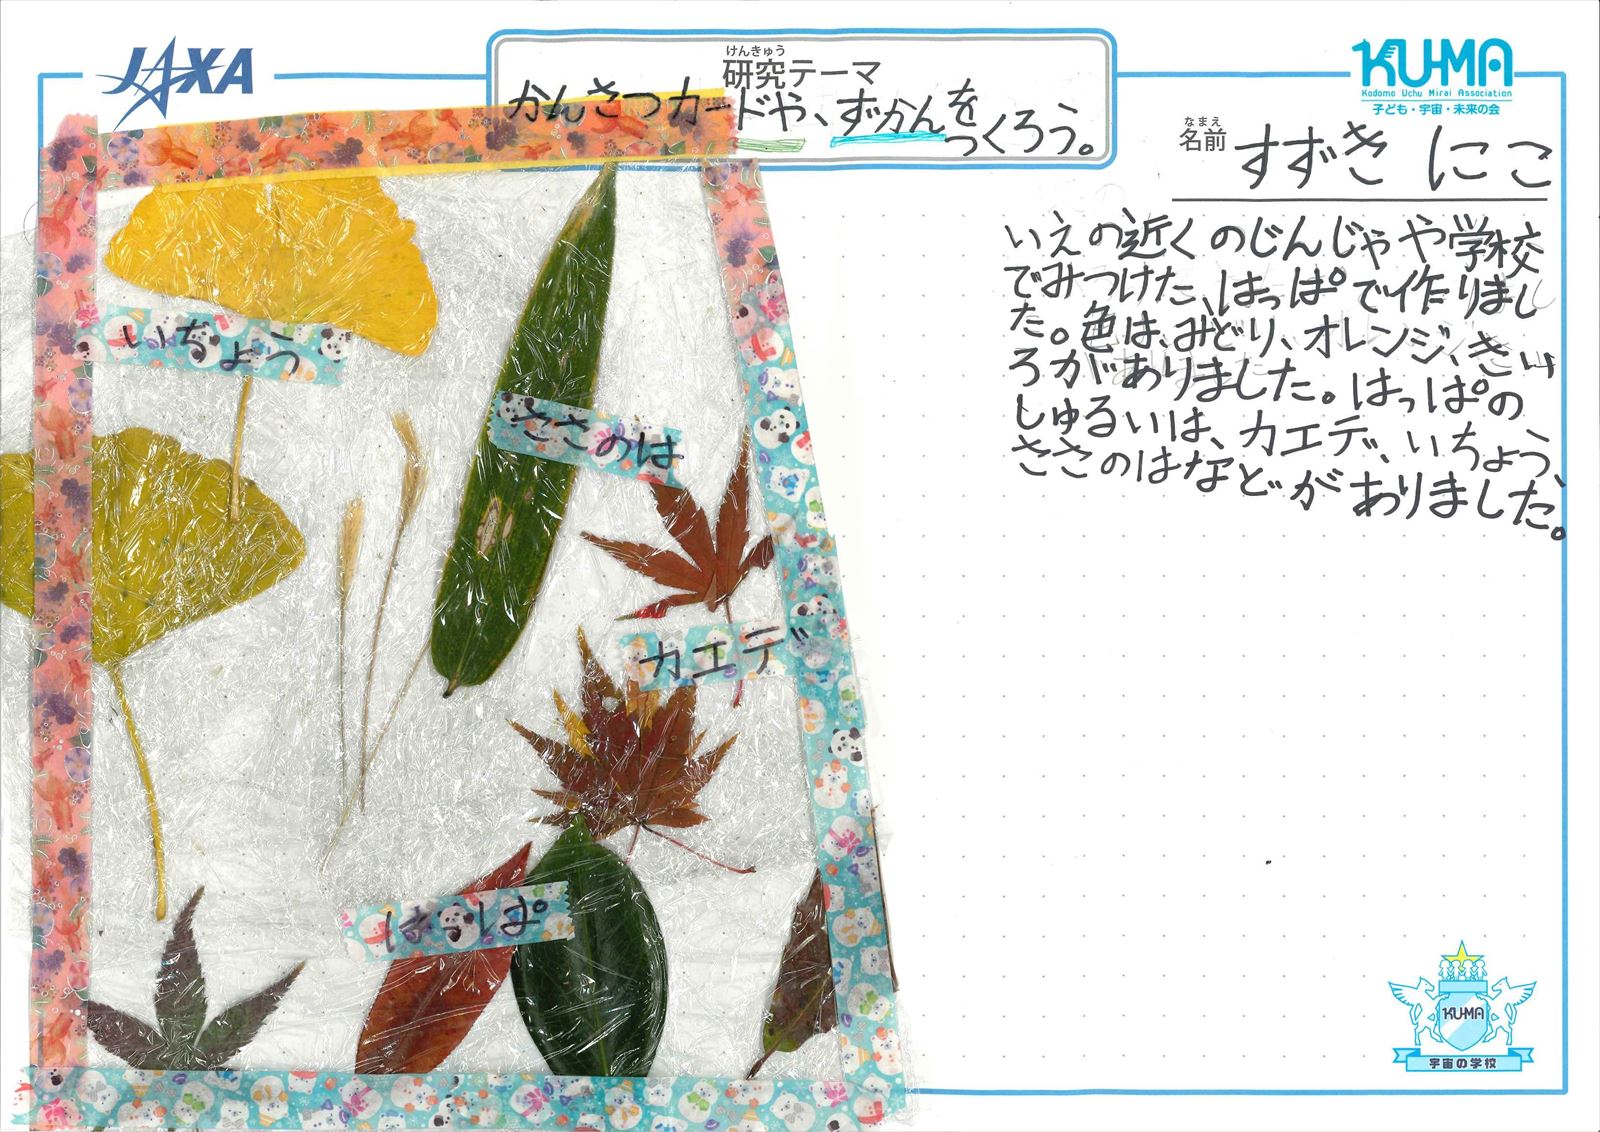 JAXA
けんきゅう
研究テーマ
かんさつカードや、ずかんを
つくろう。
KU-MA
Kodomo Uchu Mirai Association
子ども・宇宙・未来の会
なまえ
名前 すずき にこ
いえの近くのじんじゃや学校
でみつけた、はっぱで作りまし
た。色は、みどり、オレンジ、きい
ろがありました。はっぱの
しゅるいは、カエデ、いちょう、
ささのはなどがありました。
いちょう
ささのは
カエデ
はっぱ
KU-MA
宇宙の学校